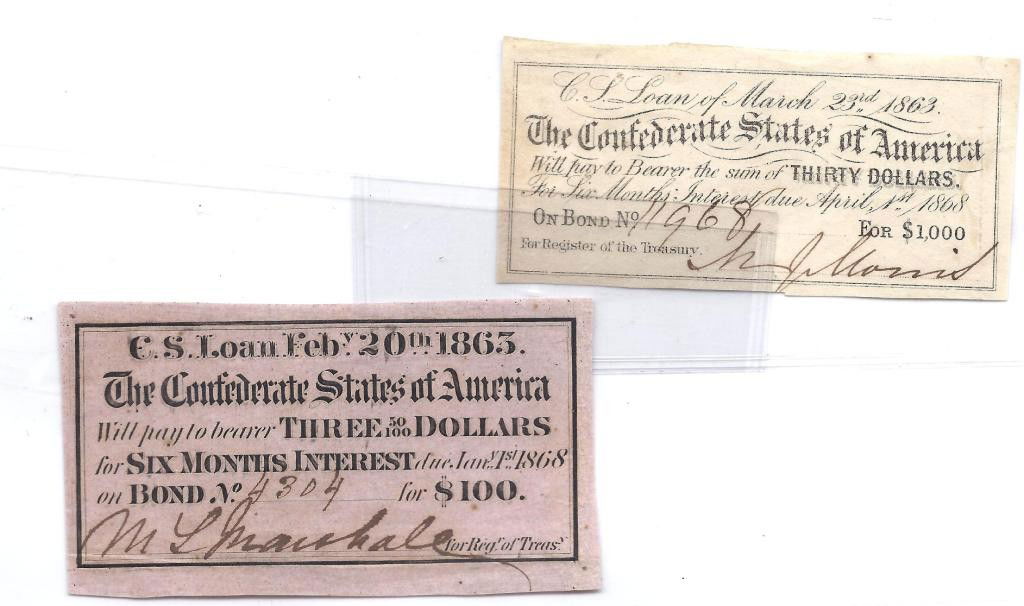 C. S. Loan of March 23rd 1863.
The Confederate States of America
Will pay to Bearer the sum of THIRTY DOLLARS.
For Six Months Interest due April 1st 1868
ON BOND No 1968 FOR $1,000
For Register of the Treasury.
C. S. Loan Feby 20th 1863.
The Confederate States of America
Will pay to bearer THREE 50/100 DOLLARS
for SIX MONTHS INTEREST due Jany 1st 1868
on BOND No 4304 for $100.
M L Marshall for Regr of Treasy